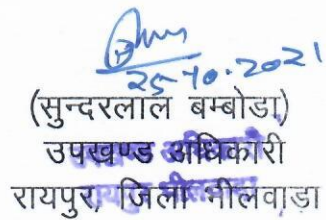 25-10-2021
(सुन्दरलाल बम्बोडा)
उपखण्ड अधिकारी
रायपुर, जिला भीलवाडा